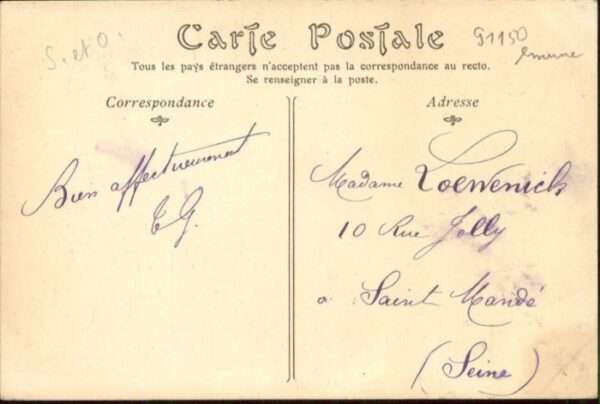 S. et O.
Carte Postale
91150
Tous les pays étrangers n'acceptent pas la correspondance au recto.
Se renseigner à la poste.
Correspondance
Bien affectueusement
Adresse
Madame Loewenick
10 Rue Jolly
a Saint Mandé
(Seine)